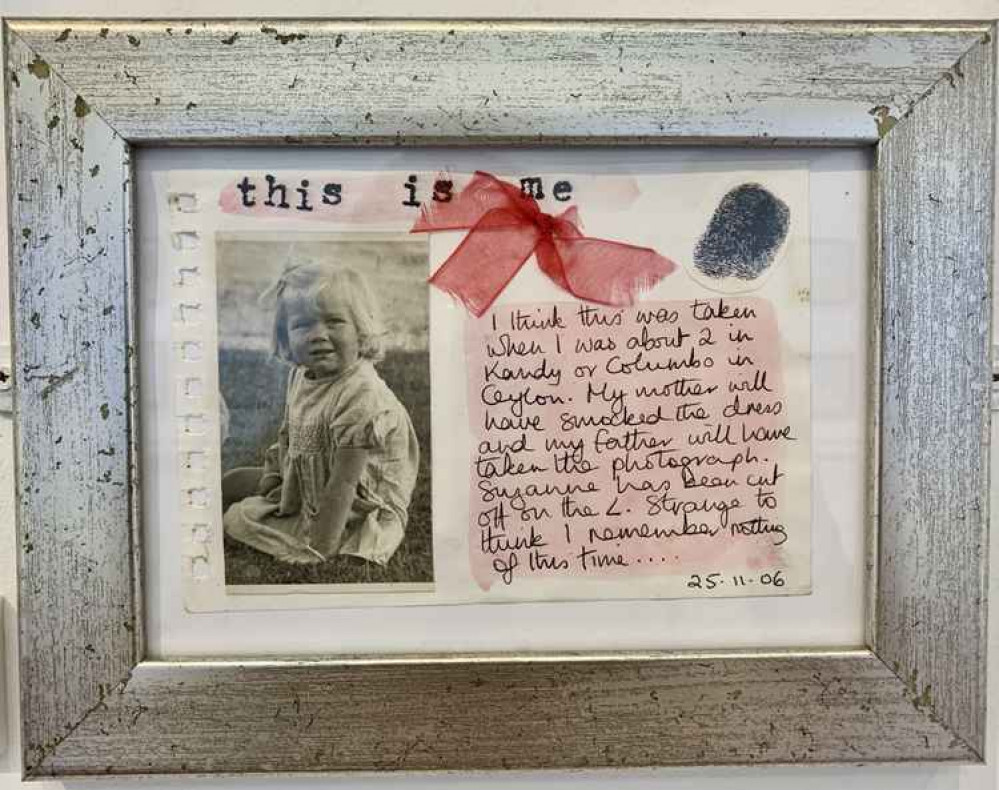 this is me
I think this was taken
when I was about 2 in
Kandy or Columbo in
Ceylon. My mother will
have smocked the dress
and my father will have
taken the photograph.
Suzanne has been cut
off on the L. Strange to
think I remember nothing
of this time....
25.11.06